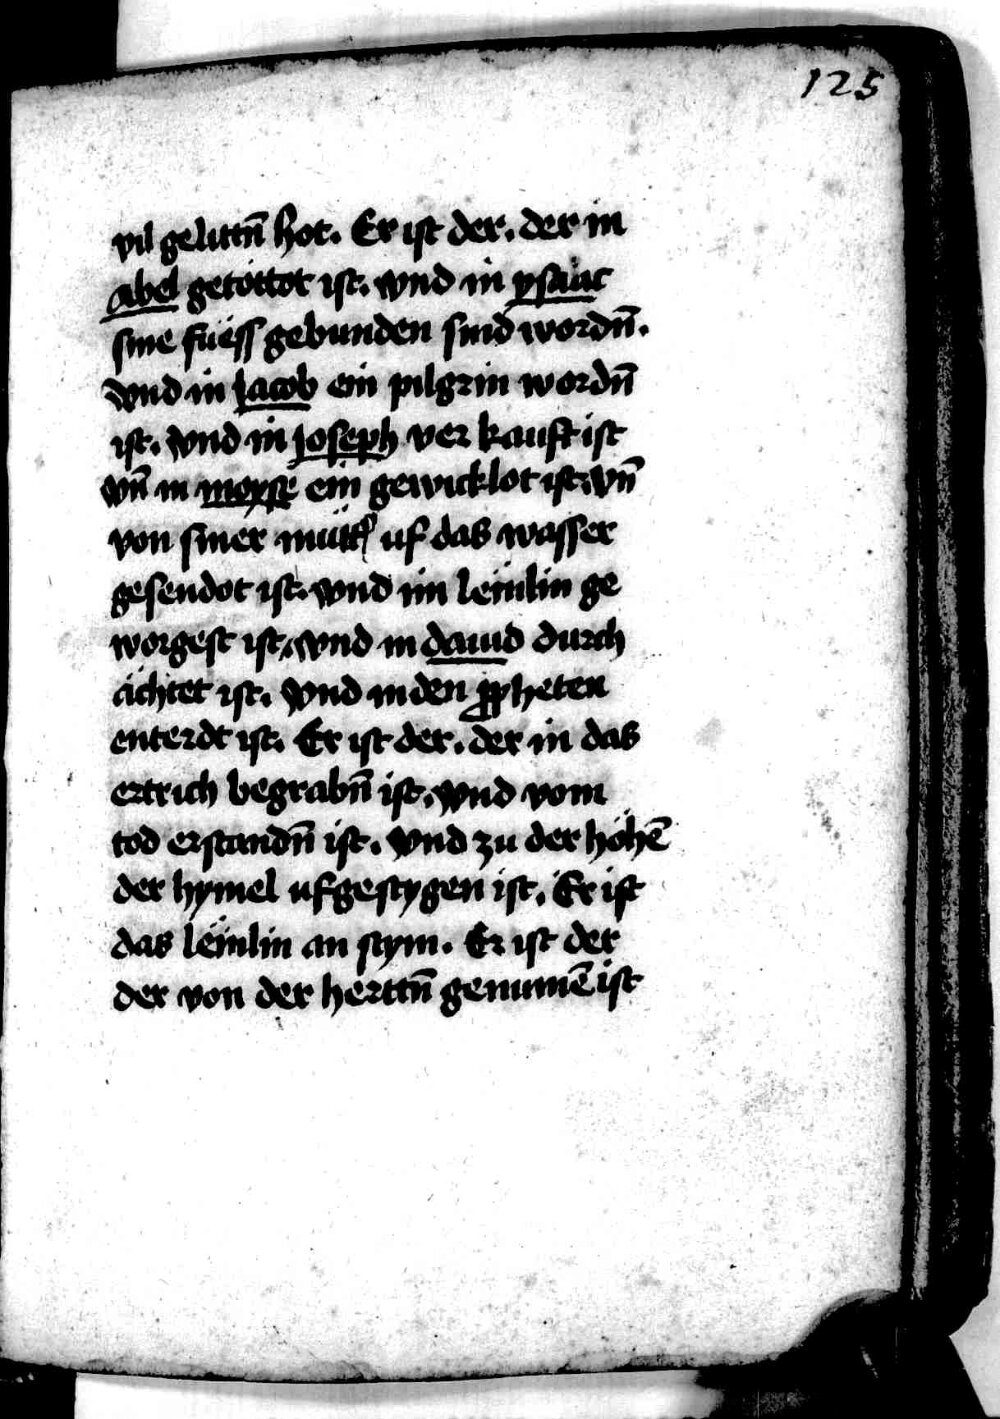 125
vil gelittn̄ hot. Er ist der. der in
abel getöttot ist. vnd in ysaac
sine füess gebunden sind wordn̄.
vnd in Jacob ein pilgrin wordn̄
ist. vnd in Joseph ver kauft ist
vn̄ in moyse ein gewicklot ist. vn̄
von siner mütt͛ uf das wasser
gesendot ist. vnd im lemlin ge
worgest ist. vnd in dauid durch
ächtet ist. vnd in den ꝓpheten
enterdt ist. Er ist der. der in das
ertrich begrabn̄ ist. vnd vom
tod erstandn̄ ist. vnd zu der höhē
der hymel ufgestygen ist. Er ist
das lemlin an stym. Er ist der
der von der herttn̄ genumē ist